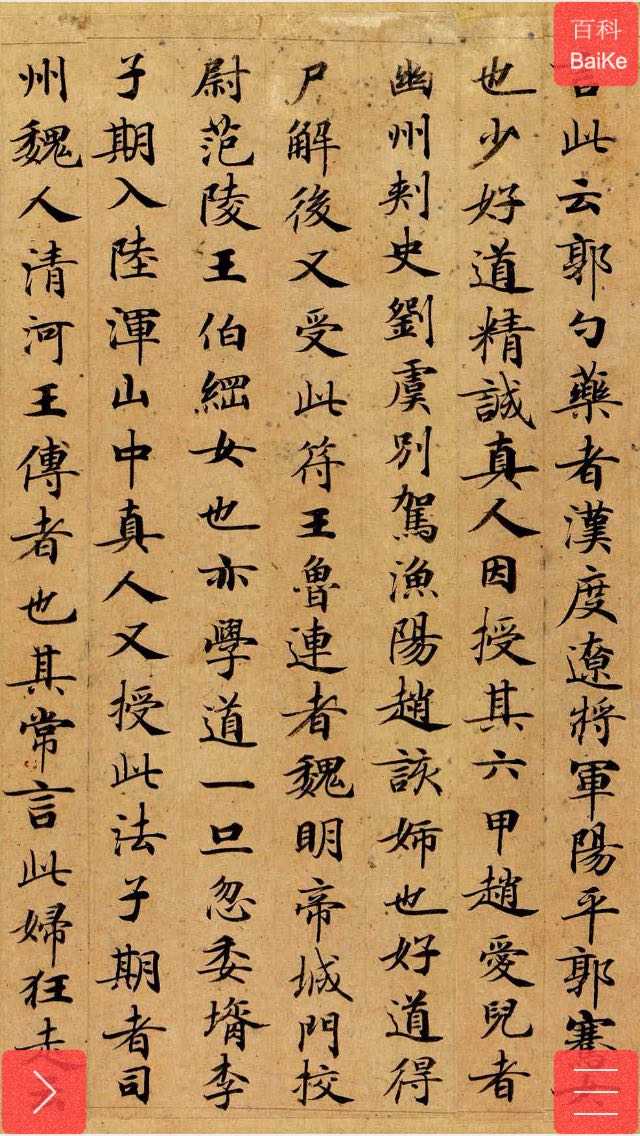 百科
BaiKe
言此云郭勺藥者漢度遼將軍陽平郭騫女
也少好道精誠真人因授其六甲趙愛兒者
幽州刾史劉虞別駕漁陽趙該姊也好道得
尸解後又受此符王魯連者魏明帝城門校
尉范陵王伯綱女也亦學道一旦忽委壻李
子期入陸渾山中真人又授此法子期者司
州魏人清河王傳者也其常言此婦狂走